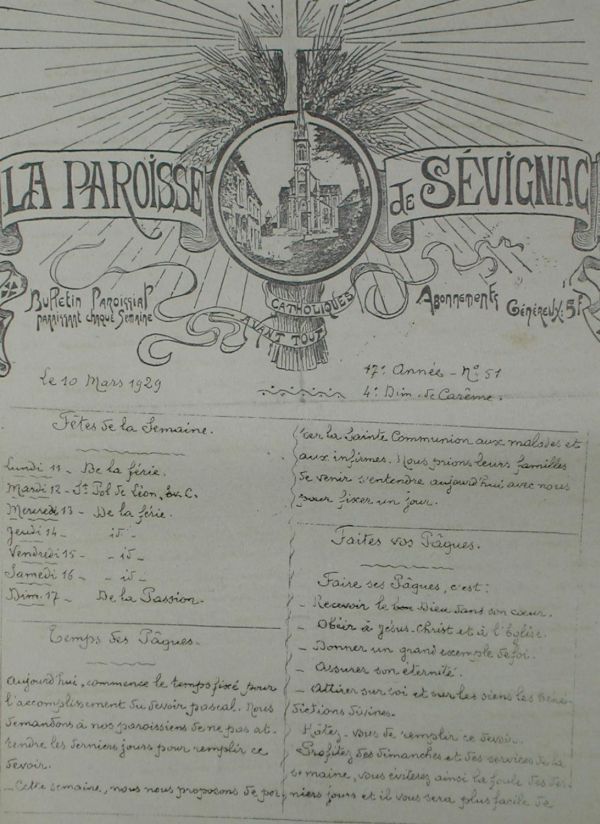 LA PAROISSE de SÉVIGNAC
Bulletin Paroissial
paraissant chaque Semaine
CATHOLIQUES
AVANT TOUT
Abonnements
Généreux: 5f
Le 10 Mars 1929
17e Année - No 51
4e Dim. de Carême.
Fêtes de la Semaine.
Lundi 11 - De la férie.
Mardi 12 - St Pol de Léon, Ev. C.
Mercredi 13 - De la férie.
Jeudi 14 - id -
Vendredi 15 - id -
Samedi 16 - id -
Dim. 17 - De la Passion.
Temps des Pâques.
Aujourd'hui, commence le temps fixé pour
l'accomplissement du devoir pascal. Nous
demandons à nos paroissiens de ne pas at-
tendre les derniers jours pour remplir ce
devoir.
- Cette semaine, nous nous proposons de por-
ter la Sainte Communion aux malades et
aux infirmes. Nous prions leurs familles
de venir s'entendre aujourd'hui avec nous
pour fixer un jour.
Faites vos Pâques.
Faire ses Pâques, c'est:
- Recevoir le bon Dieu dans son cœur.
- Obéir à Jésus-Christ et à l'Eglise.
- Donner un grand exemple de foi.
- Assurer son éternité.
- Attirer sur soi et sur les siens les béné-
dictions divines.
Hâtez-vous de remplir ce devoir.
Profitez des dimanches et des services de la
semaine, vous éviterez ainsi la foule des der-
niers jours et il vous sera plus facile de